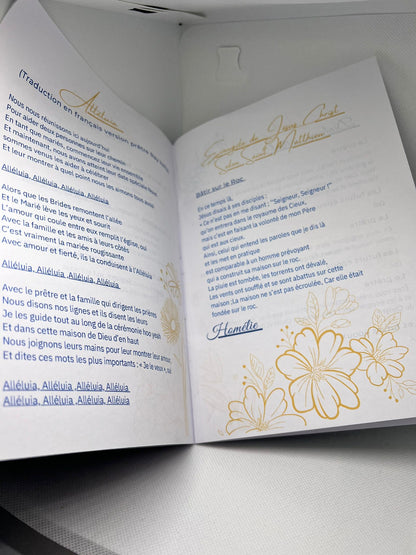 Alléluia
(Traduction en français version prêtre
Nous nous réunissons ici aujourd'hui
Pour aider deux personnes sur leur chemin
En tant que mariés, commencent leur vie ensemble
Et maintenant, nous avons atteint leur date spéciale
sommes venus les aider à célébrer
Et leur montrer à quel point nous les aimons tous aussi
Alléluia, Alléluia, Alléluia, Alléluia
Alors que les Brides remontent l'allée
Et le Marié lève les yeux et sourit
L'amour qui coule entre eux remplit l'église, oui
Avec la famille et les amis à leurs côtés
C'est vraiment la mariée rougissante
Avec amour et fierté, ils la conduisent à l'Alléluia
Alléluia, Alléluia ,Alléluia, Alléluia,
Avec le prêtre et la famille qui dirigent les prières
Nous disons nos lignes et ils disent les leurs
Je les guide tout au long de la cérémonie hoo yeah
Et dans cette maison de Dieu d'en haut
Nous joignons leurs mains pour leur montrer leur amour,
Et dites ces mots les plus importants : « Je le veux », oui
Alléluia, Alléluia ,Alléluia, Alléluia
Alléluia, Alléluia ,Alléluia, Alléluia
Evangile de Jesus Christ
selon Saint Matthieu
Bâtir sur le Roc
En ce temps là,
Jésus disais à ses disciples :
« Ce n'est pas en me disant : "Seigneur, Seigneur !"
qu'on entrera dans le royaume des Cieux,
mais c'est en faisant la volonté de mon Père
qui est aux cieux.
Ainsi, celui qui entend les paroles que je dis là
et les met en pratique
est comparable à un homme prévoyant
qui a construit sa maison sur le roc.
La pluie est tombée, les torrents ont dévalé,
Les vents ont soufflé et se sont abattus sur cette
maison ;La maison ne s'est pas écroulée, Car elle était
fondée sur le roc.
Homélie